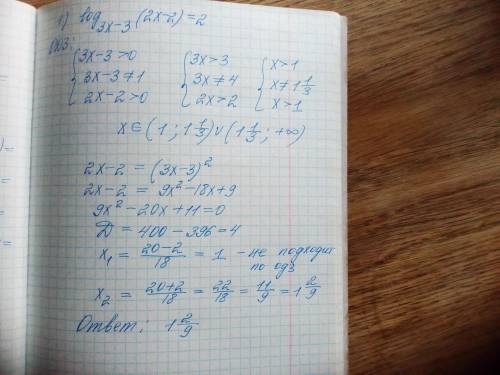 1) log_{3x-3}(2x-2)=2
ОДЗ:
{ 3x-3>0 { 3x>3 { x>1
{ 3x-3≠1 { 3x≠4 { x≠1 1/3
{ 2x-2>0 { 2x>2 { x>1
x∈(1; 1 1/3)∪(1 1/3; +∞)
2x-2 = (3x-3)²
2x-2 = 9x²-18x+9
9x²-20x+11=0
Д = 400-396=4
x₁ = (20-2)/18 = 1 - не подходит
по одз
x₂ = (20+2)/18 = 22/18 = 11/9 = 1 2/9
Ответ: 1 2/9